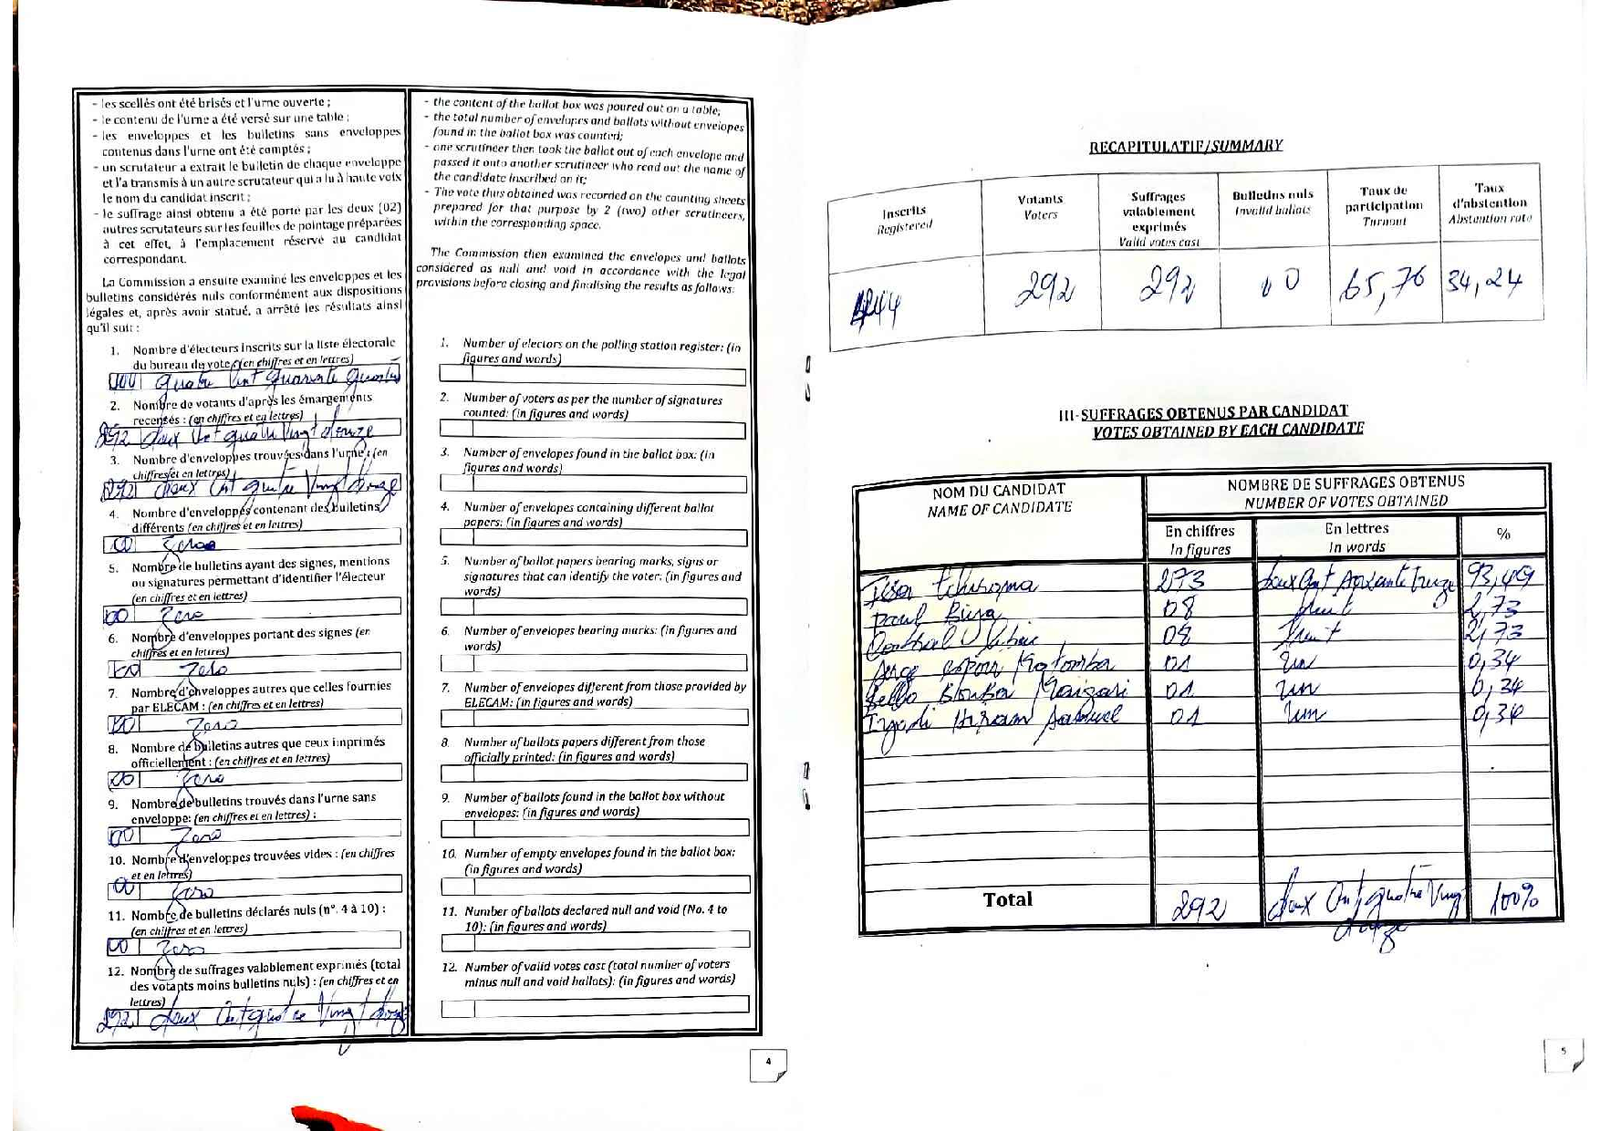 - les scellés ont été brisés et l'urne ouverte ;
- le contenu de l'urne a été versé sur une table ;
- les enveloppes et les bulletins sans enveloppes
contenus dans l'urne ont été comptés ;
- un scrutateur a extrait le bulletin de chaque enveloppe
et l'a transmis à un autre scrutateur qui a lu à haute voix
le nom du candidat inscrit ;
- le suffrage ainsi obtenu a été porté par les deux (02)
autres scrutateurs sur les feuilles de pointage préparées
à cet effet, à l'emplacement réservé au candidat
correspondant.
La Commission a ensuite examiné les enveloppes et les
bulletins considérés nuls conformément aux dispositions
légales et, après avoir statué, a arrêté les résultats ainsi
qu'il suit :
1. Nombre d'électeurs inscrits sur la liste électorale
du bureau de vote : (en chiffres et en lettres)
444 quatre Cent quarante quatre
2. Nombre de votants d'après les émargements
recensés : (en chiffres et en lettres)
292 deux Cent quatre Vingt douze
3. Nombre d'enveloppes trouvées dans l'urne : (en
chiffres et en lettres)
292 deux Cent quatre Vingt douze
4. Nombre d'enveloppes contenant des bulletins
différents (en chiffres et en lettres)
00 Zero
5. Nombre de bulletins ayant des signes, mentions
ou signatures permettant d'identifier l'électeur
(en chiffres et en lettres)
00 Zero
6. Nombre d'enveloppes portant des signes (en
chiffres et en lettres)
00 Zero
7. Nombre d'enveloppes autres que celles fournies
par ELECAM : (en chiffres et en lettres)
00 Zero
8. Nombre de bulletins autres que ceux imprimés
officiellement : (en chiffres et en lettres)
00 Zero
9. Nombre de bulletins trouvés dans l'urne sans
enveloppe: (en chiffres et en lettres) :
00 Zero
10. Nombre d'enveloppes trouvées vides : (en chiffres
et en lettres)
00 Zero
11. Nombre de bulletins déclarés nuls (n°. 4 à 10) :
(en chiffres et en lettres)
00 Zero
12. Nombre de suffrages valablement exprimés (total
des votants moins bulletins nuls) : (en chiffres et en
lettres)
292 deux Cent quatre Vingt douze
- the content of the ballot box was poured out on a table;
- the total number of envelopes and ballots without envelopes
found in the ballot box was counted;
- one scrutineer then took the ballot out of each envelope and
passed it onto another scrutineer who read out the name of
the candidate inscribed on it;
- The vote thus obtained was recorded on the counting sheets
prepared for that purpose by 2 (two) other scrutineers,
within the corresponding space.
The Commission then examined the envelopes and ballots
considered as null and void in accordance with the legal
provisions before closing and finalising the results as follows:
1. Number of electors on the polling station register: (in
figures and words)
2. Number of voters as per the number of signatures
counted: (in figures and words)
3. Number of envelopes found in the ballot box: (in
figures and words)
4. Number of envelopes containing different ballot
papers: (in figures and words)
5. Number of ballot papers bearing marks, signs or
signatures that can identify the voter: (in figures and
words)
6. Number of envelopes bearing marks: (in figures and
words)
7. Number of envelopes different from those provided by
ELECAM: (in figures and words)
8. Number of ballots papers different from those
officially printed: (in figures and words)
9. Number of ballots found in the ballot box without
envelopes: (in figures and words)
10. Number of empty envelopes found in the ballot box:
(in figures and words)
11. Number of ballots declared null and void (No. 4 to
10): (in figures and words)
12. Number of valid votes cast (total number of voters
minus null and void ballots): (in figures and words)
4
RECAPITULATIF/SUMMARY
Inscrits Registered Votants Voters Suffrages valablement exprimés Valid votes cast Bulletins nuls Invalid ballots Taux de participation Turnout Taux d'abstention Abstention rate
444 292 292 00 65,76 34,24
III-SUFFRAGES OBTENUS PAR CANDIDAT
VOTES OBTAINED BY EACH CANDIDATE
NOM DU CANDIDAT NOMBRE DE SUFFRAGES OBTENUS
NAME OF CANDIDATE NUMBER OF VOTES OBTAINED
En chiffres En lettres %
In figures In words
Issa Tchiroma 273 deux Cent Soixante Treize 93,49
Paul Biya 08 huit 2,73
Cabral Libii 08 huit 2,73
Serge Espoir Matomba 01 un 0,34
Bello Bouba Maigari 01 un 0,34
Iyodi Hiram Samuel 01 un 0,34
Total 292 deux Cent quatre Vingt 100%
douze
5